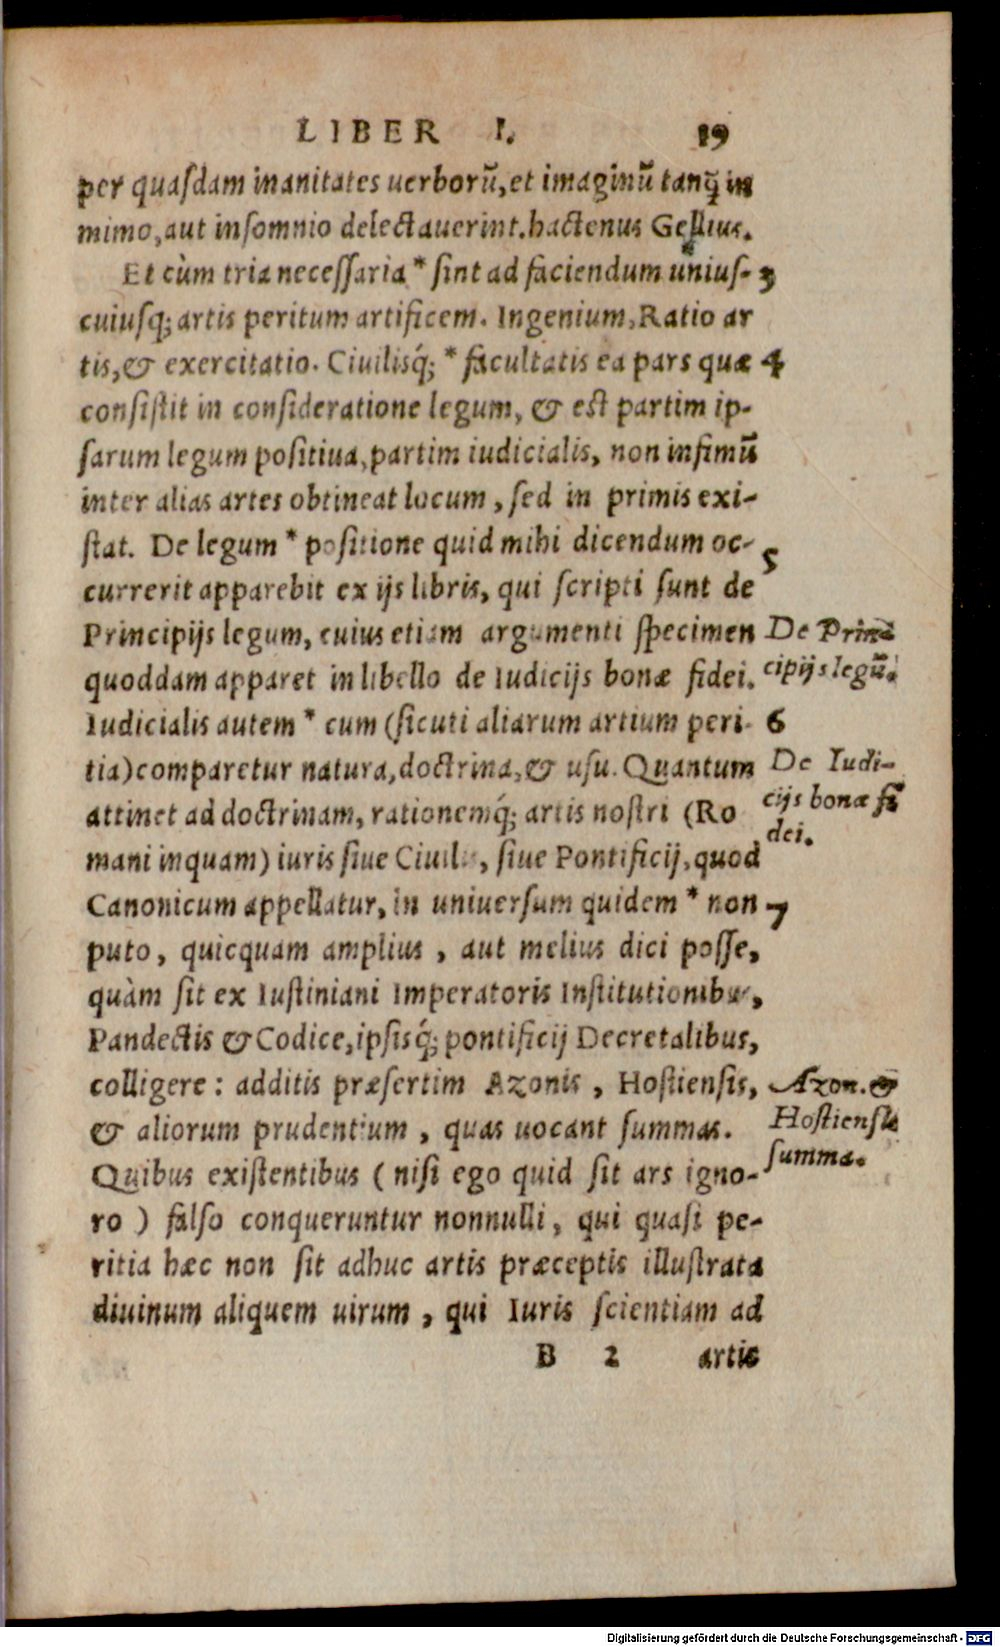 LIBER I. 19
per quasdam inanitates uerborũ, et imaginũ tanq̃ in
mimo, aut insomnio delectauerint. hactenus Gellius.
Et cùm tria necessaria * sint ad faciendum unius- 3
cuiusq; artis peritum artificem. Ingenium, Ratio ar
tis, & exercitatio. Ciuilisq́; * facultatis ea pars quæ 4
consistit in consideratione legum, & est partim ip-
sarum legum positiua, partim iudicialis, non infimũ
inter alias artes obtineat locum, sed in primis exi-
stat. De legum * positione quid mihi dicendum oc- 5
currerit apparebit ex ijs libris, qui scripti sunt de
Principijs legum, cuius etiam argumenti specimen
De Prin
cipijs legũ.
quoddam apparet in libello de Iudicijs bonæ fidei.
Iudicialis autem * cum (sicuti aliarum artium peri- 6
tia) comparetur natura, doctrina, & usu. Quantum
De Iudi-
cijs bonæ fi
dei.
attinet ad doctrinam, rationemq́; artis nostri (Ro
mani inquam) iuris siue Ciuilis, siue Pontificij, quod
Canonicum appellatur, in uniuersum quidem * non 7
puto, quicquam amplius, aut melius dici posse,
quàm sit ex Iustiniani Imperatoris Institutionibus,
Pandectis & Codice, ipsisq́; pontificij Decretalibus,
colligere: additis præsertim Azonis, Hostiensis,
Azon. &
Hostiensis
summa.
& aliorum prudentium, quas uocant summas.
Quibus existentibus (nisi ego quid sit ars igno-
ro) falso conqueruntur nonnulli, qui quasi pe-
ritia hæc non sit adhuc artis præceptis illustrata
diuinum aliquem uirum, qui Iuris scientiam ad
B 2 artis
Digitalisierung gefördert durch die Deutsche Forschungsgemeinschaft - DFG